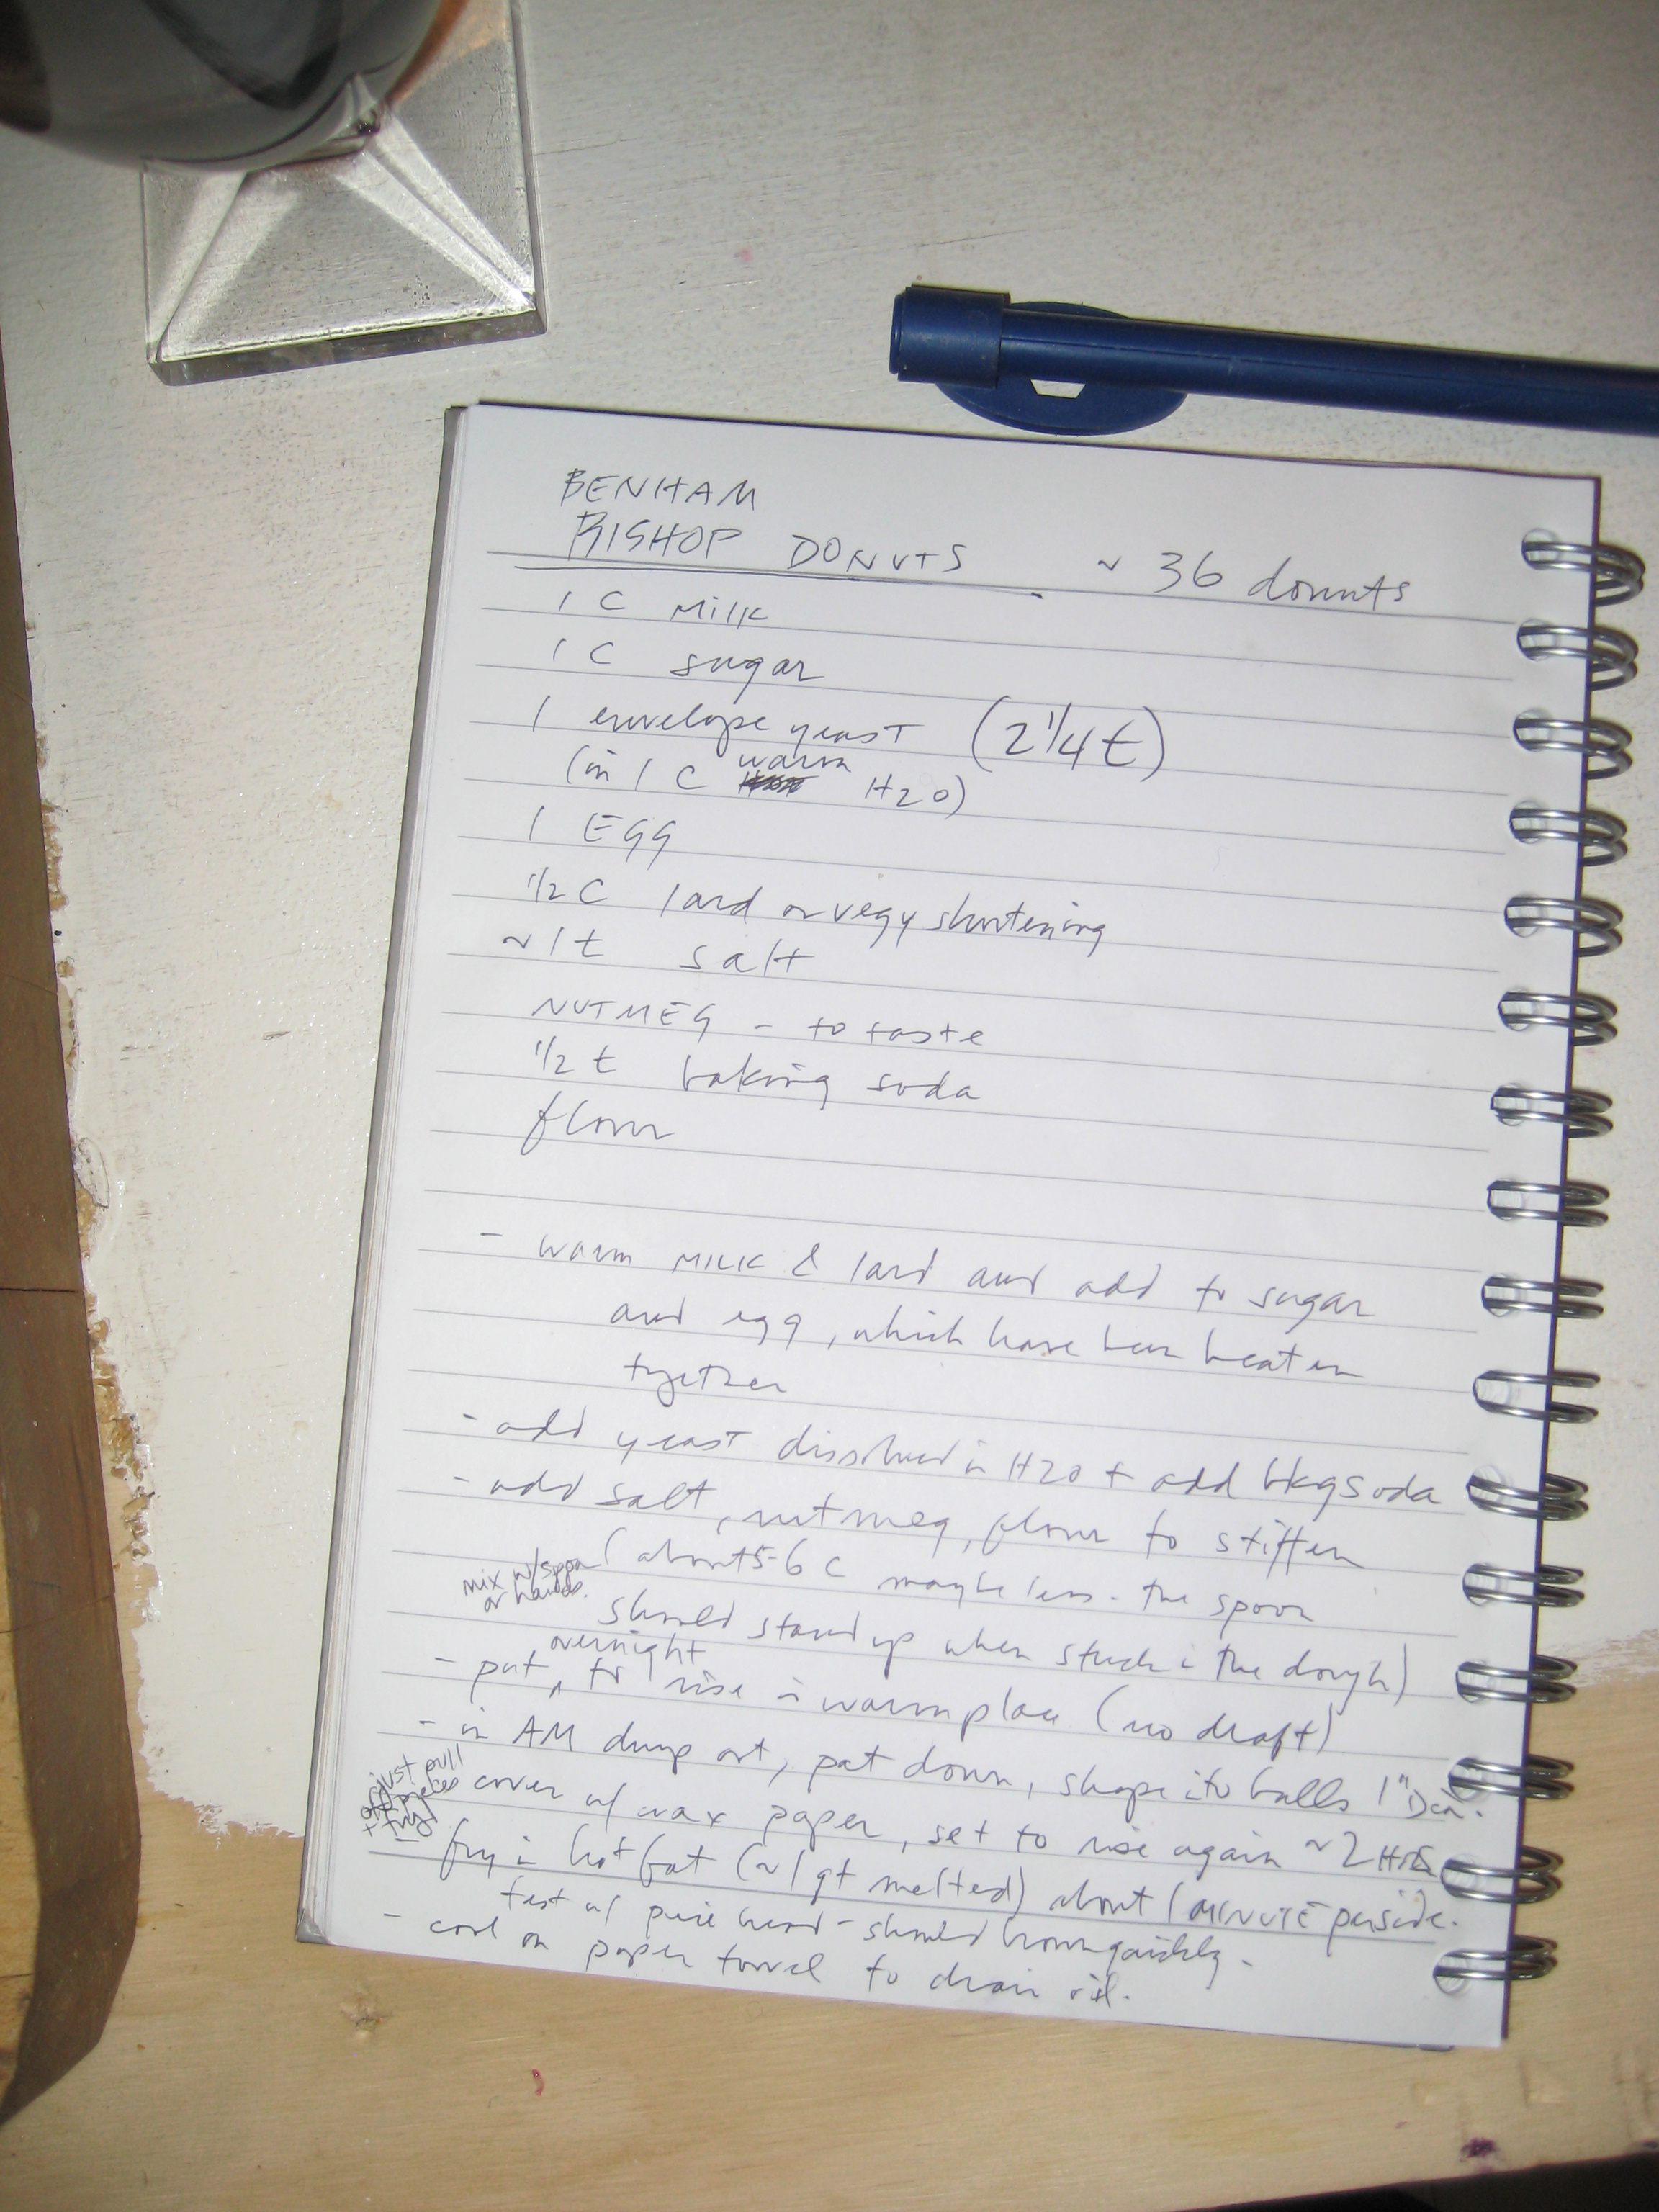 BENHAM
BISHOP DONUTS ~ 36 donuts
1 C MilK
1 C sugar
1 envelope yeast (2 1/4 t)
(in 1 C warm H2O)
1 EGG
1/2 C lard or vegy shortening
~1t salt
NUTMEG - to taste
1/2 t baking soda
flour
- warm MILK & lard and add to sugar
and egg, which have been beaten
together
- add yeast dissolved in H2O + add bkg soda
- add salt, nutmeg, flour to stiffen
mix w/spoon
or hands.
(about 5-6 c maybe less - the spoon
should stand up when stuck in the dough)
- put overnight to rise in warm place (no draft)
- in AM dump out, pat down, shape into balls 1" Dia.
just pull
off pieces
+ fry!
cover w/ wax paper, set to rise again ~2 HRS
- fry in hot fat (~1 qt melted) about 1 MINUTE per side.
test w/ piece bread - should brown quickly.
- cool on paper towel to drain oil.